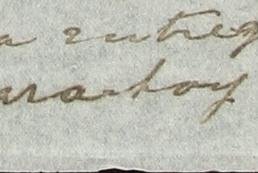 a entreg
ara hoy